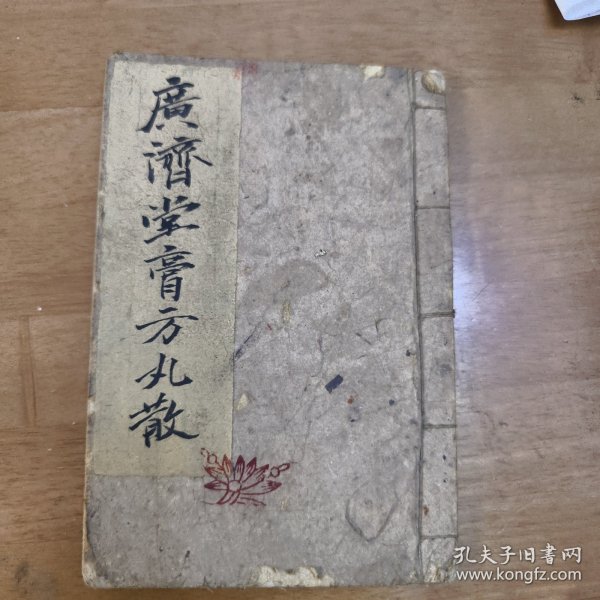 廣濟堂膏方丸散
孔夫子旧書网
www.kongfz.com